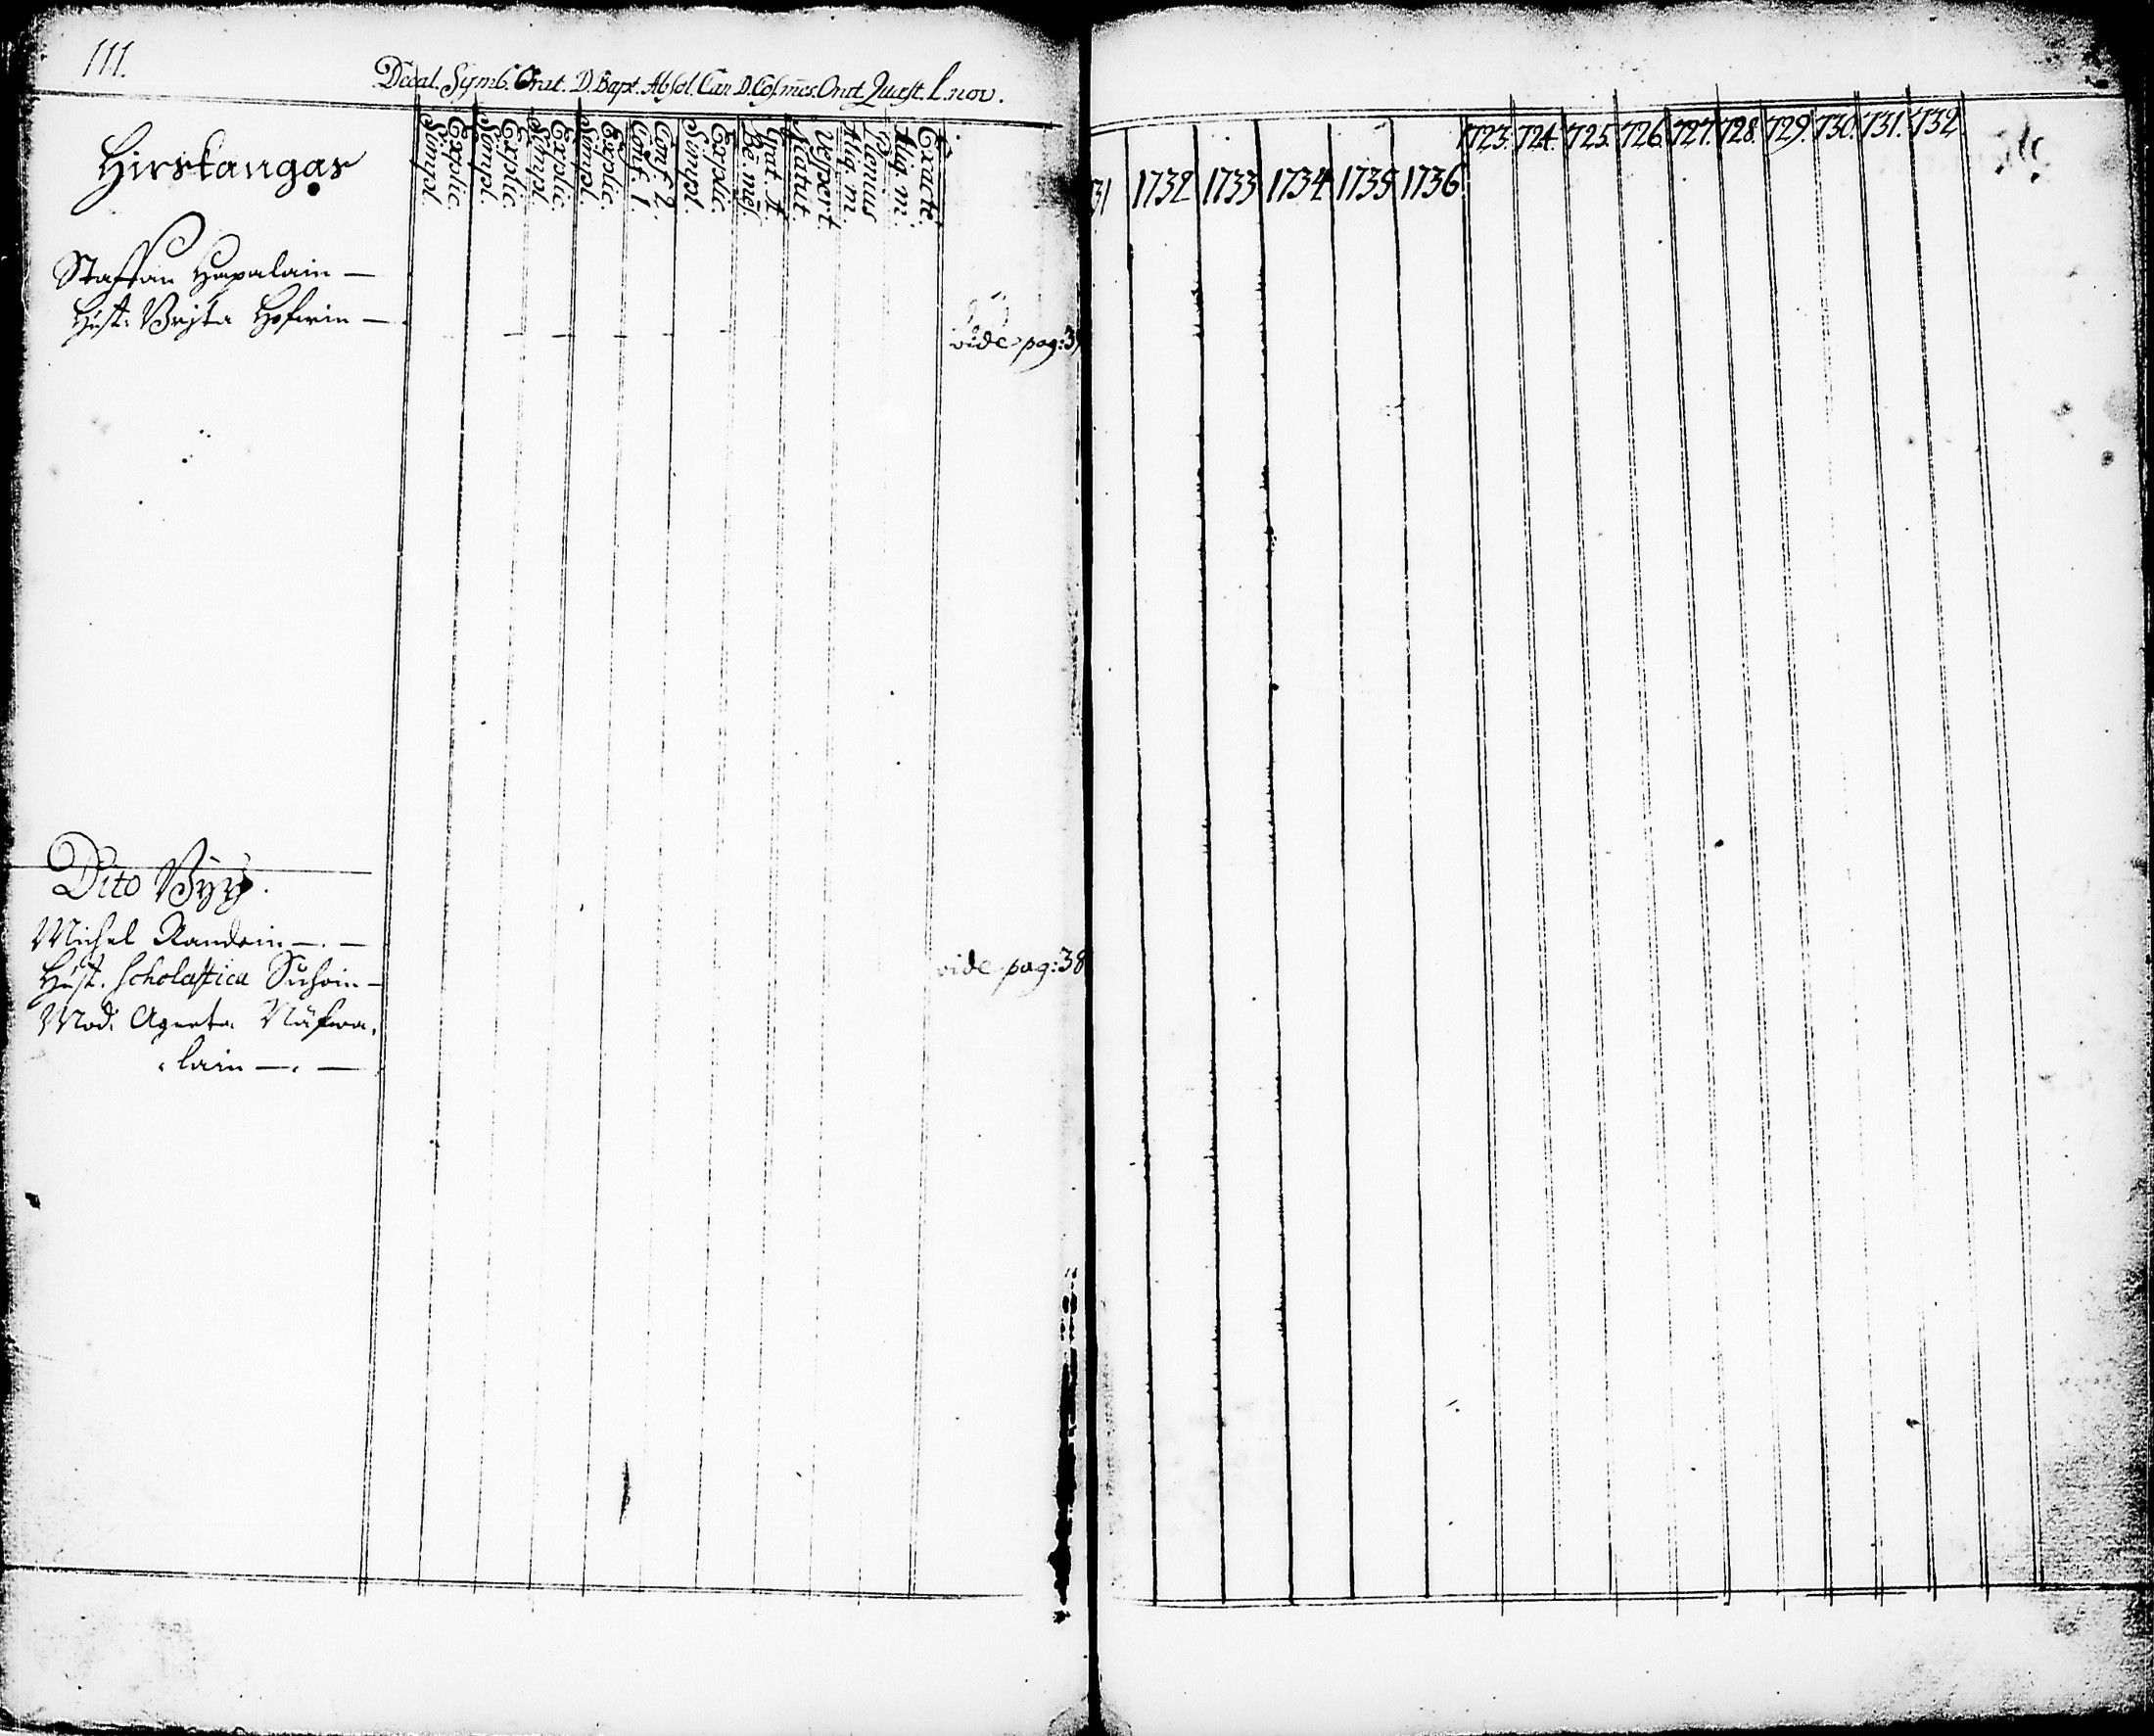 111.
Decal. Symb. Orat. D. Bapt. Absol. Can D. Cos. mes. Orat. Quest. L. nov.
Hirskangas
Simpl. Explic. Simpl. Explic. Simpl. Explic. Simpl. Explic. Conf. 1. Conf. 2. Simpl. Explic. Be. mes. Grat. A. Matut. Vespert. Aliq. m. Plenius Aliq. m. Exacte.
Staffan Hapalain —
Hust. Brijta Hofrin —
vide pag: 3
Dito Byy.
Michel Randein —. —
vide pag: 38
Hust. Scholastica Suhoin —
Mod. Agneta Näfwa,
lain —. —
31 1732 1733 1734 1735 1736
1723. 724. 725. 726. 727. 728. 729. 730. 731. 732.